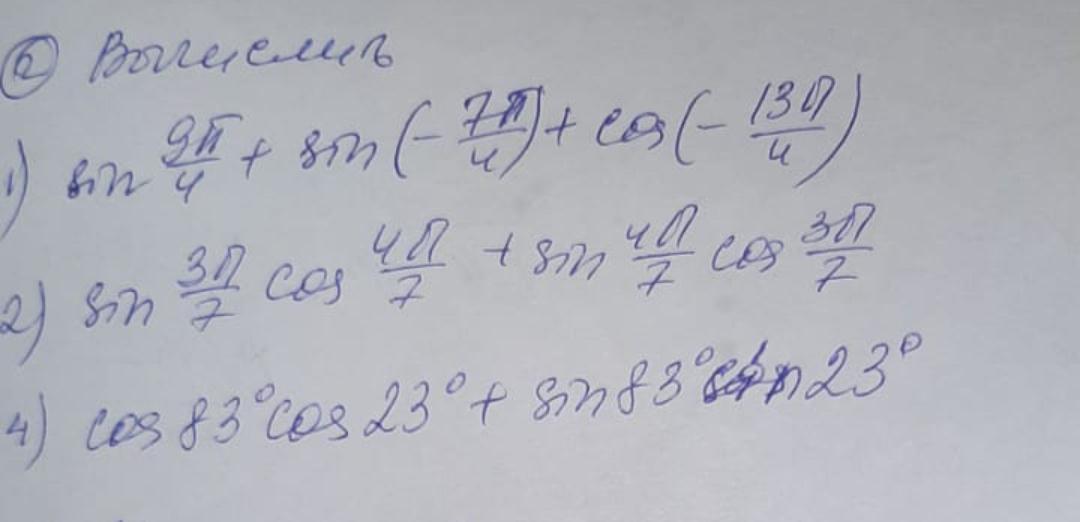 ⑥ Вычислить
1) sin 9π/4 + sin (- 7π/4) + cos (- 13π/4)
2) sin 3π/7 cos 4π/7 + sin 4π/7 cos 3π/7
4) cos 83° cos 23° + sin 83° sin 23°